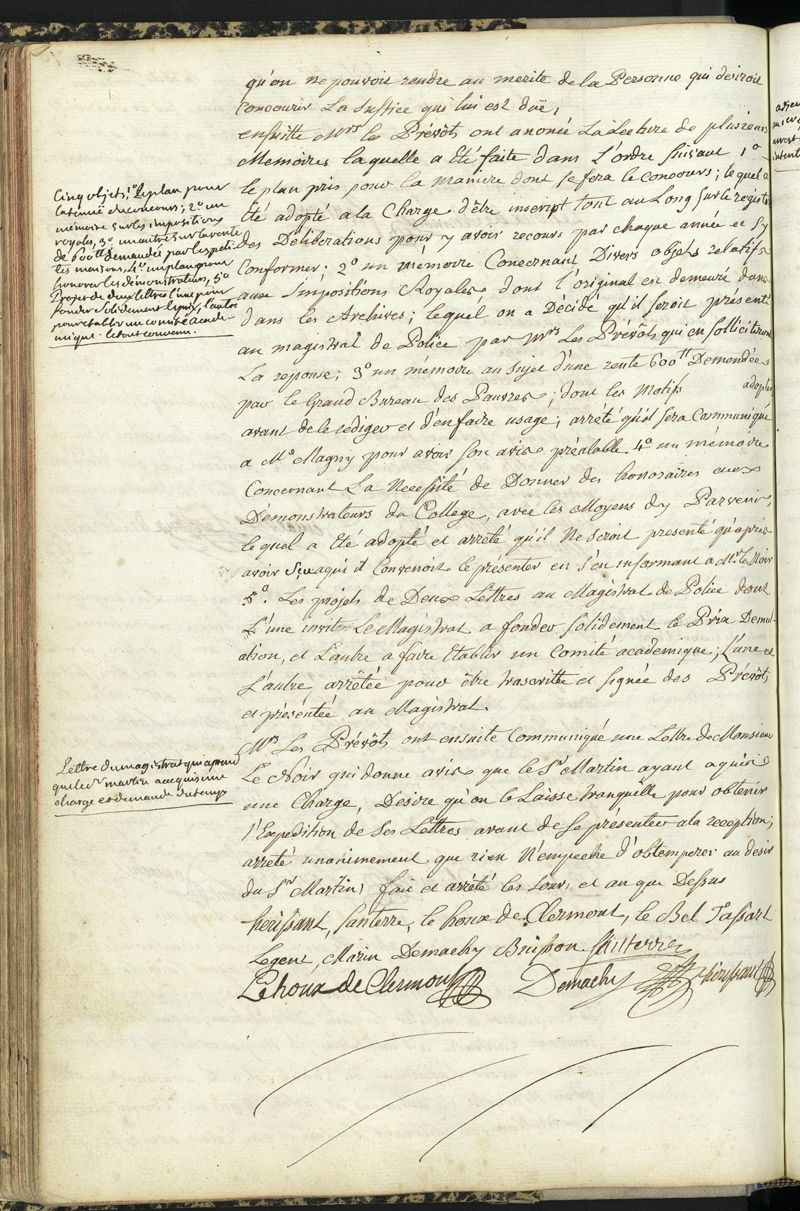 qu'on ne pouvoit rendre au merite de la Personne qui desiroit
Concourir La Justice qui lui est düe,
ensuitte Mrs les Prévôts ont anoncé La Lecture de plusieurs
Memoires laquelle a été faite dans L'ordre suivant 1o
le plan pris pour la maniere dont se fera le concours; lequel a
Eté adopté a la Charge d'être inscript tout au Long sur le registre
des Deliberations pour y avoir recours par chaque année et s'y
Conformer; 2o un mémoire Concernant Divers objets relatifs
aux Impositions Royales dont l'original est demeuré dans
dans les Archives; lequel on a Décidé qu'il seroit présenté
au magistrat de Police par Mrs Les Prévôts qui en solliciteront
La reponse; 3o un mémoire au sujet d'une rente 600tt Demendée
par le Grand Bureau des Pauvres; dont les Motifs adoptés
avant de le rédiger et d'en faire usage; arrêté qu'il sera Communiqué
a Me Magny pour avoir son avis préalable 4o un mémoire
Concernant La Necessité de Donner des honoraires aux
Démonstrateurs du College, avec les Moyens d'y Parvenir,
lequel a Eté adopté et arrêté qu'il Ne seroit presenté qu'après
avoir Sçu a qui il Convenoit le présenter en s'en informant a Mr le Noir
5o. Les projets de Deux Lettres au Magistrat de Police dont
L'une invite Le Magistrat a fonder solidement le Prix Demul-
ation, et L'autre a faire Etablir un Comité académique; L'une et
L'autre arrêtée pour être trascritte et signée des Prévôts
et présentée au Magistrat.
Mrs Les Prévôts ont ensuite Communiqué une Lettre de Monsieur
Le Noir qui donne avis que le Sr Martin ayant aquis
une Charge, Desire qu'on le Laisse tranquille pour obtenir
l'Expedition de Ses Lettres avant de se présenter a la reception;
arrêté unanimement que rien N'empeche d'obtemperer au desir
du Sr Martin; fait et arrêté les Jour, et an que Dessus
hérissant, Santerre, le houx de Clermont, le Bel Tassart
Legent, Marin Demachy Buisson Santerre
Lehoux de Clermont Demachy hérissant
Cinq objets; 1o Le plan pour
la tenüe du concours; 2o un
mémoire sur les impositions
royales, 3o un autre sur la rente
de 600tt demandée par les peti-
tes maisons, 4o un plan pour
honorer les démonstrateurs, 5o
Projet de deux lettres l'une pour
fonder solidement le prix, l'autre
pour etablir un comité acade-
mique. le tout convenu.
Lettre du magistrat qui aprend
que le Sr martin a acquis une
charge et demande du temps